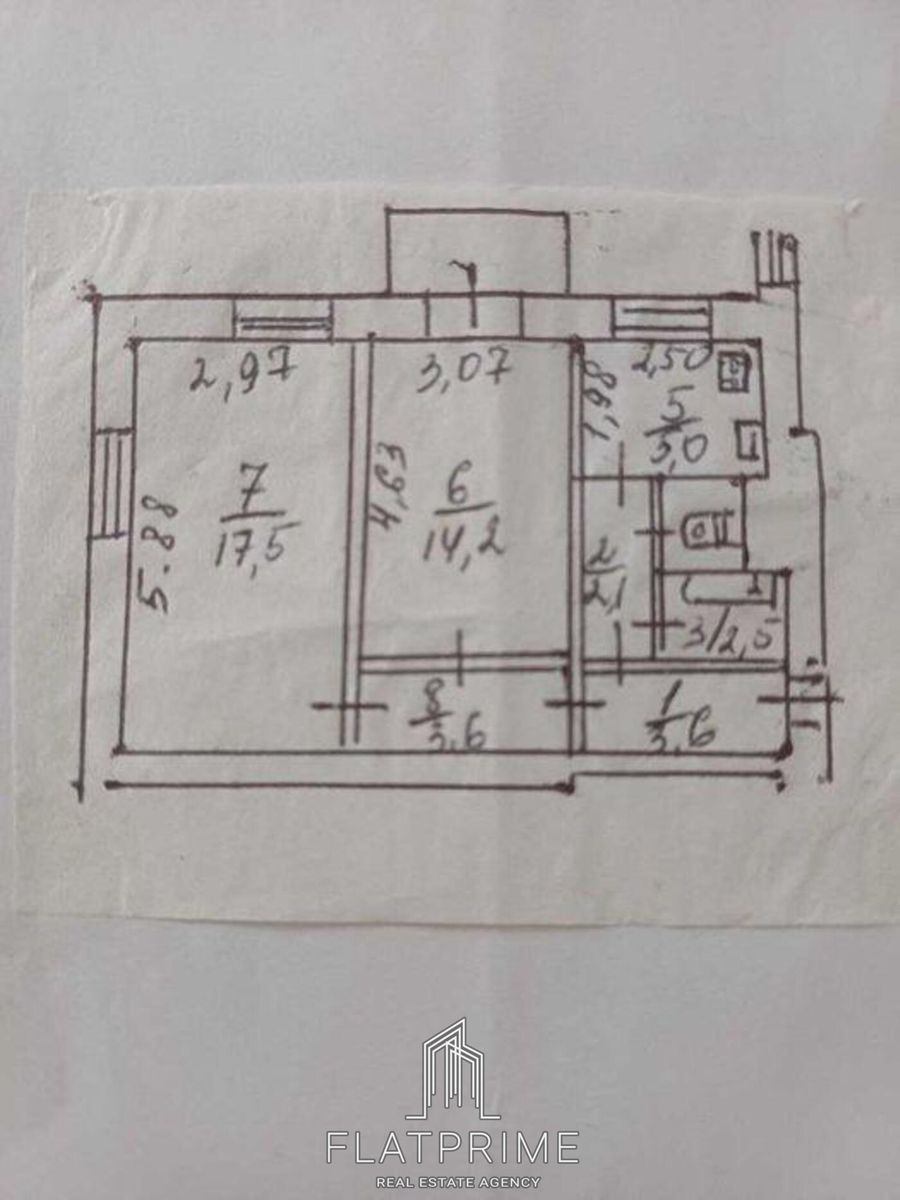 2,97
3,07
2,50
1,98
5
5,0
4,63
7
17,5
6
14,2
5.88
2
2,1
3/2,5
8
3,6
1
3,6
FLATPRIME
REAL ESTATE AGENCY